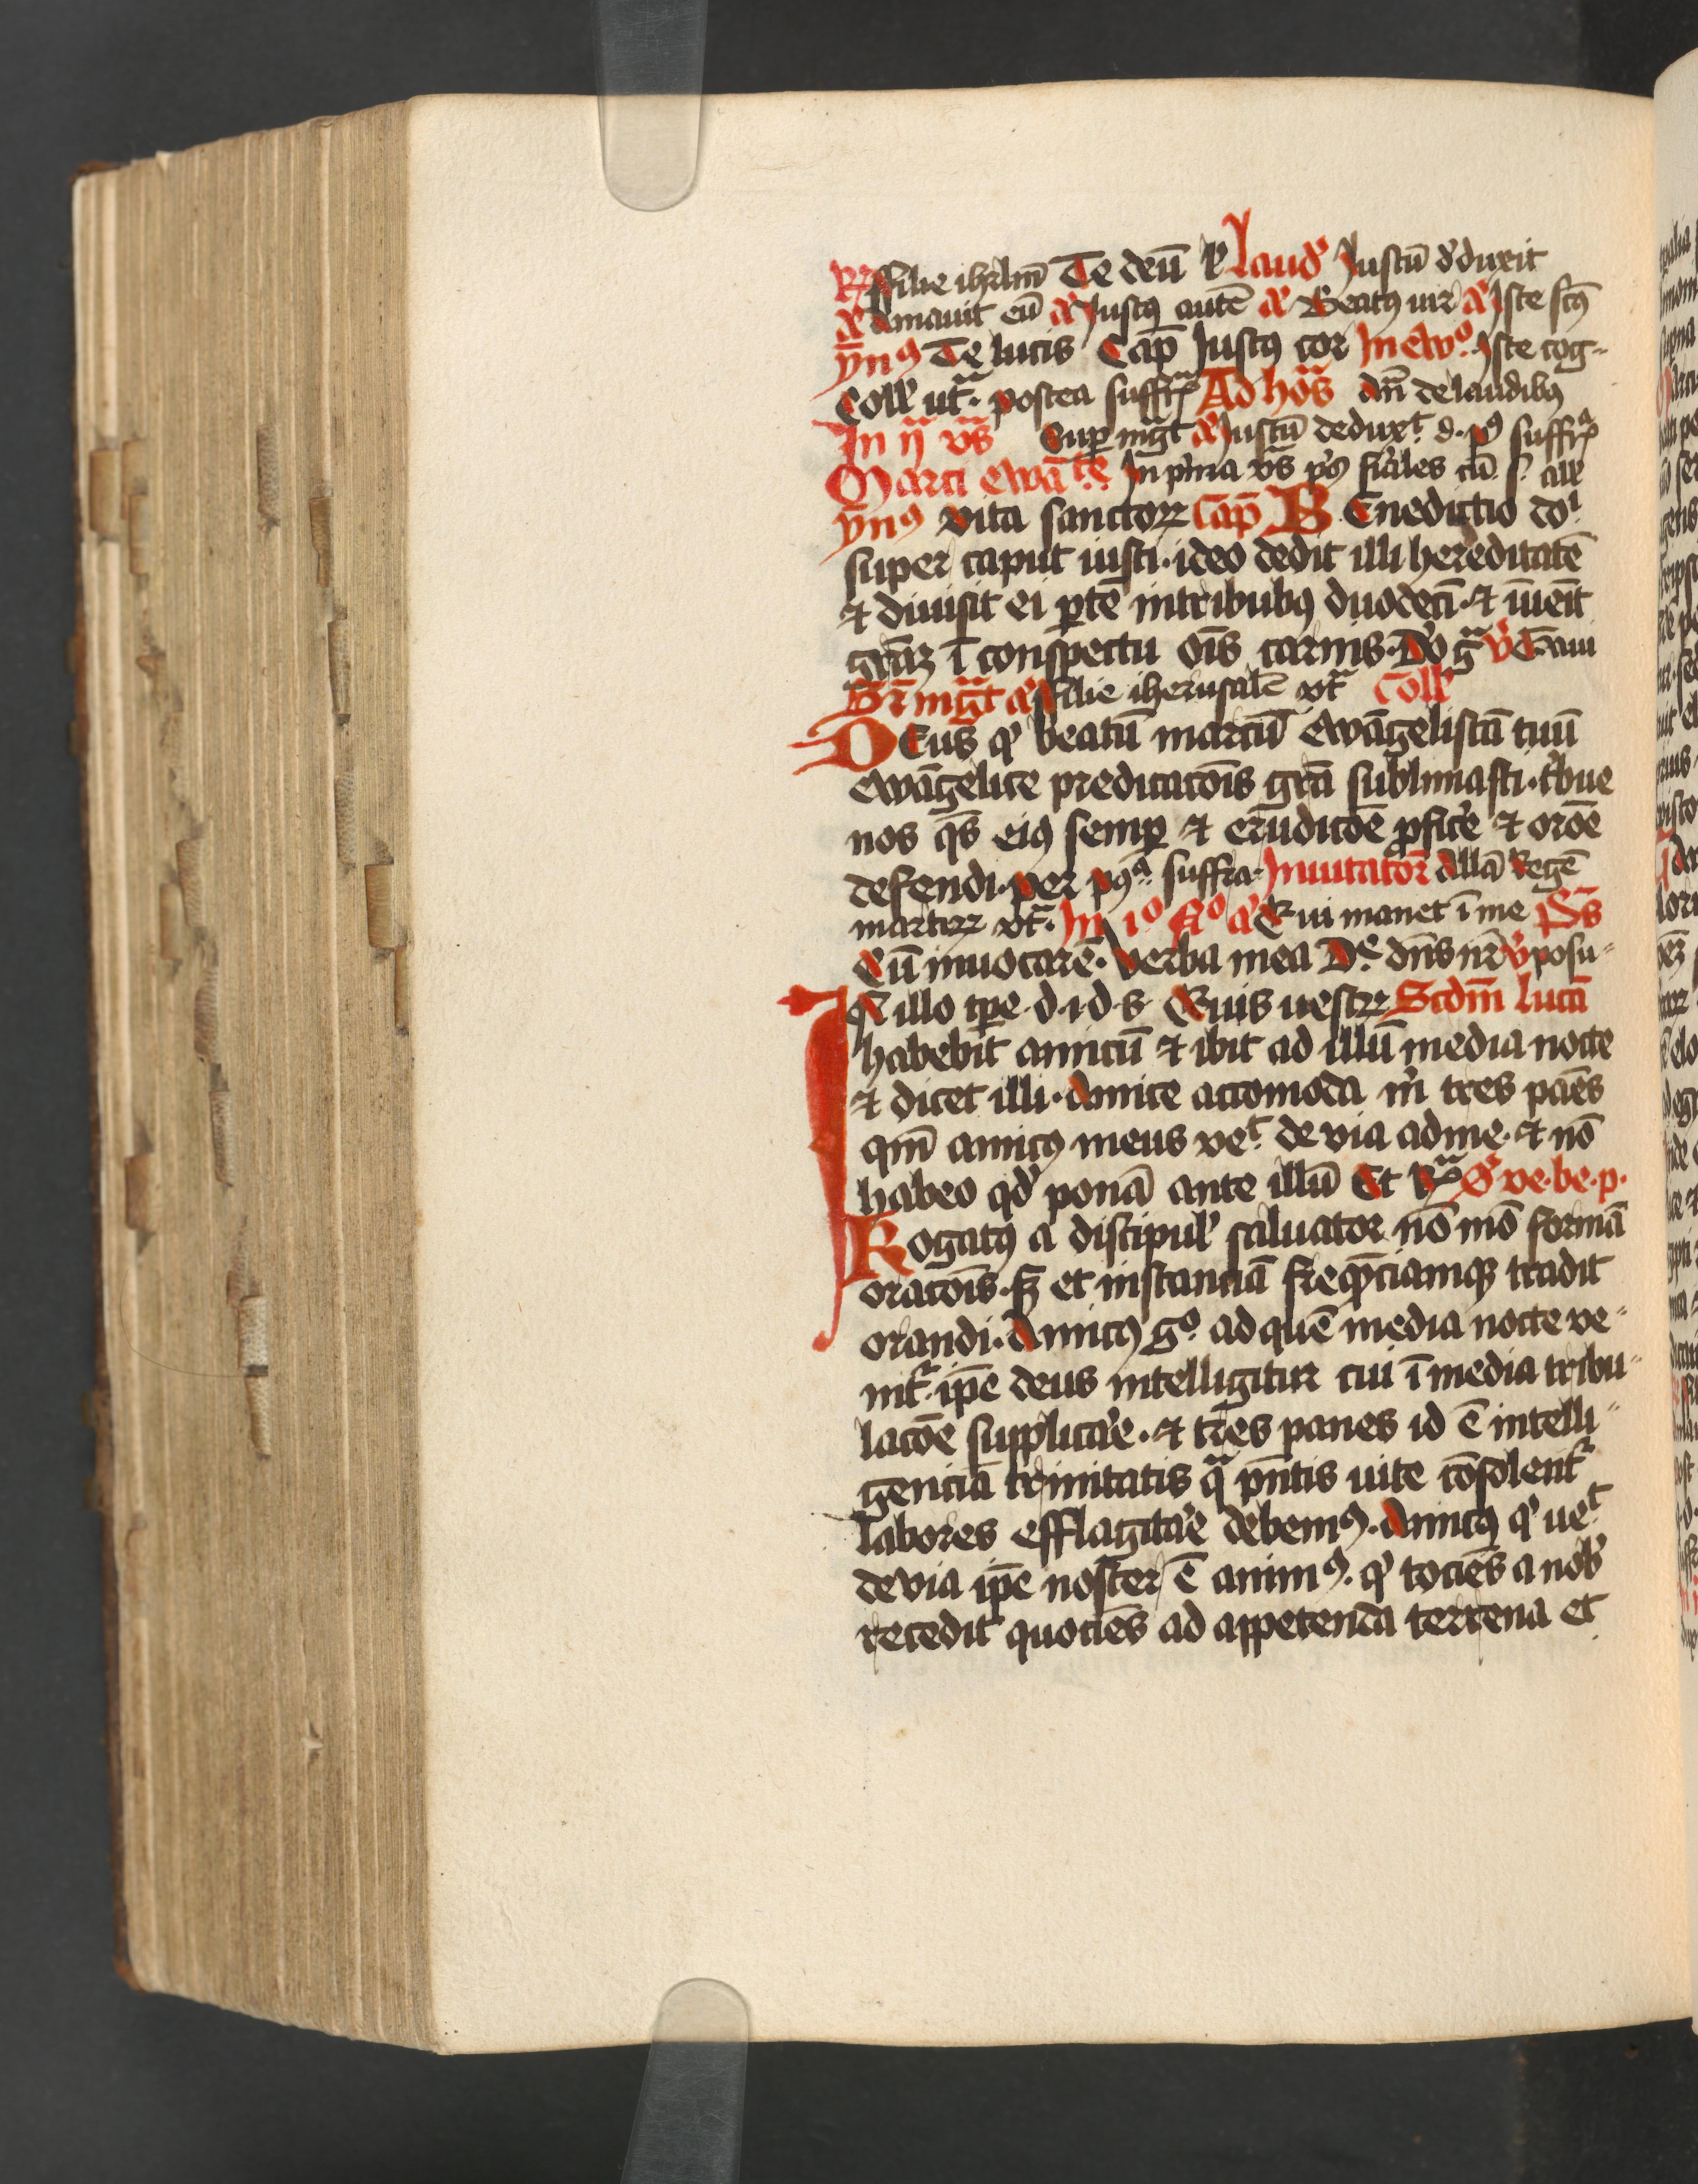 R ffilie ihrlm̄ Te deū v̓ Laud̓ Justū d̓duxit
a̓ Amauit eū a̓ Justꝰ autē a̓ Beatꝰ uir a̓ Iste sctꝰ
ympnꝰ Te lucis Cap̄ Justꝰ cor In ewͦ. Iste cog-
Coll̓ ut᷑. postea suffrͣ Ad horas dn̄i de laudibꝰ
In ij vs̄ Sup mgt̄ a̓ Justū deduxt. d. pꝰ suffrͣ
Marci ewāte In prima vs̄ ps̓ fiales cū. s. all̓
ymnꝰ vita sanctoꝝ Cap̄ BEnedictio doi
super caput iusti. ideo dedit illi hereditatē
et diuisit ei ꝑtē in tribubꝰ duodecī. et īuenīt
grāꝫ ī conspectu oīs carnis. Do gͣ v̓ Gaui
Br̄ mgt̄ a̓ ffilie iherusalē vt᷑ Coll̓
DEus qͥ beatū marcū Ewāgelistā tuū
ewāgelice predicacōis grā sublimasti. tͥbue
nos qs̄ eiꝰ semꝑ et erudicōe ꝓfice̓ et orōe
defendi. per pꝰͣ. suffra. Inuitator̄ Allā Regē
martirꝝ vt᷑. In iͦ Nͦ a̓ Qui manet ī me Ps̄
Cū inuocarē. Verba mea Dne dn̄s nr̄ v̓ posu-
IN illo tp̄e. d. i. d. s. Quis uestrꝝ Scdm̄ lucā
habebit amicū et ibit ad illū media nocte
et dicet illi. Amice accomoda mͥ tres panēs
qm̄ amicꝰ meus vet de via ad me. et nō
habeo qd̓ ponā ante illū Et rͣ S̓ ve. be. p.
Rogatꝰ a discipul̓ saluator nō mō formā
oracōis. sꝫ et instanciā freqn̄ciamqꝫ tradit
orandi. Amicꝰ gͦ. ad quē media nocte ve-
nit᷑. ip̄e deus intelligitur cui ī media tribu-
lacōe supplicar̓e. et tres panes id ē intelli-
genciā trinitatis qͣ pn̄tis uite cōsolent᷑
labores efflagitar̓e debemꝰ. Amicꝰ qͥ uet
de via ip̄e noster ē animꝰ. qͥ tociēs a nob̓
recedit quociēs ad appetenda terrena et